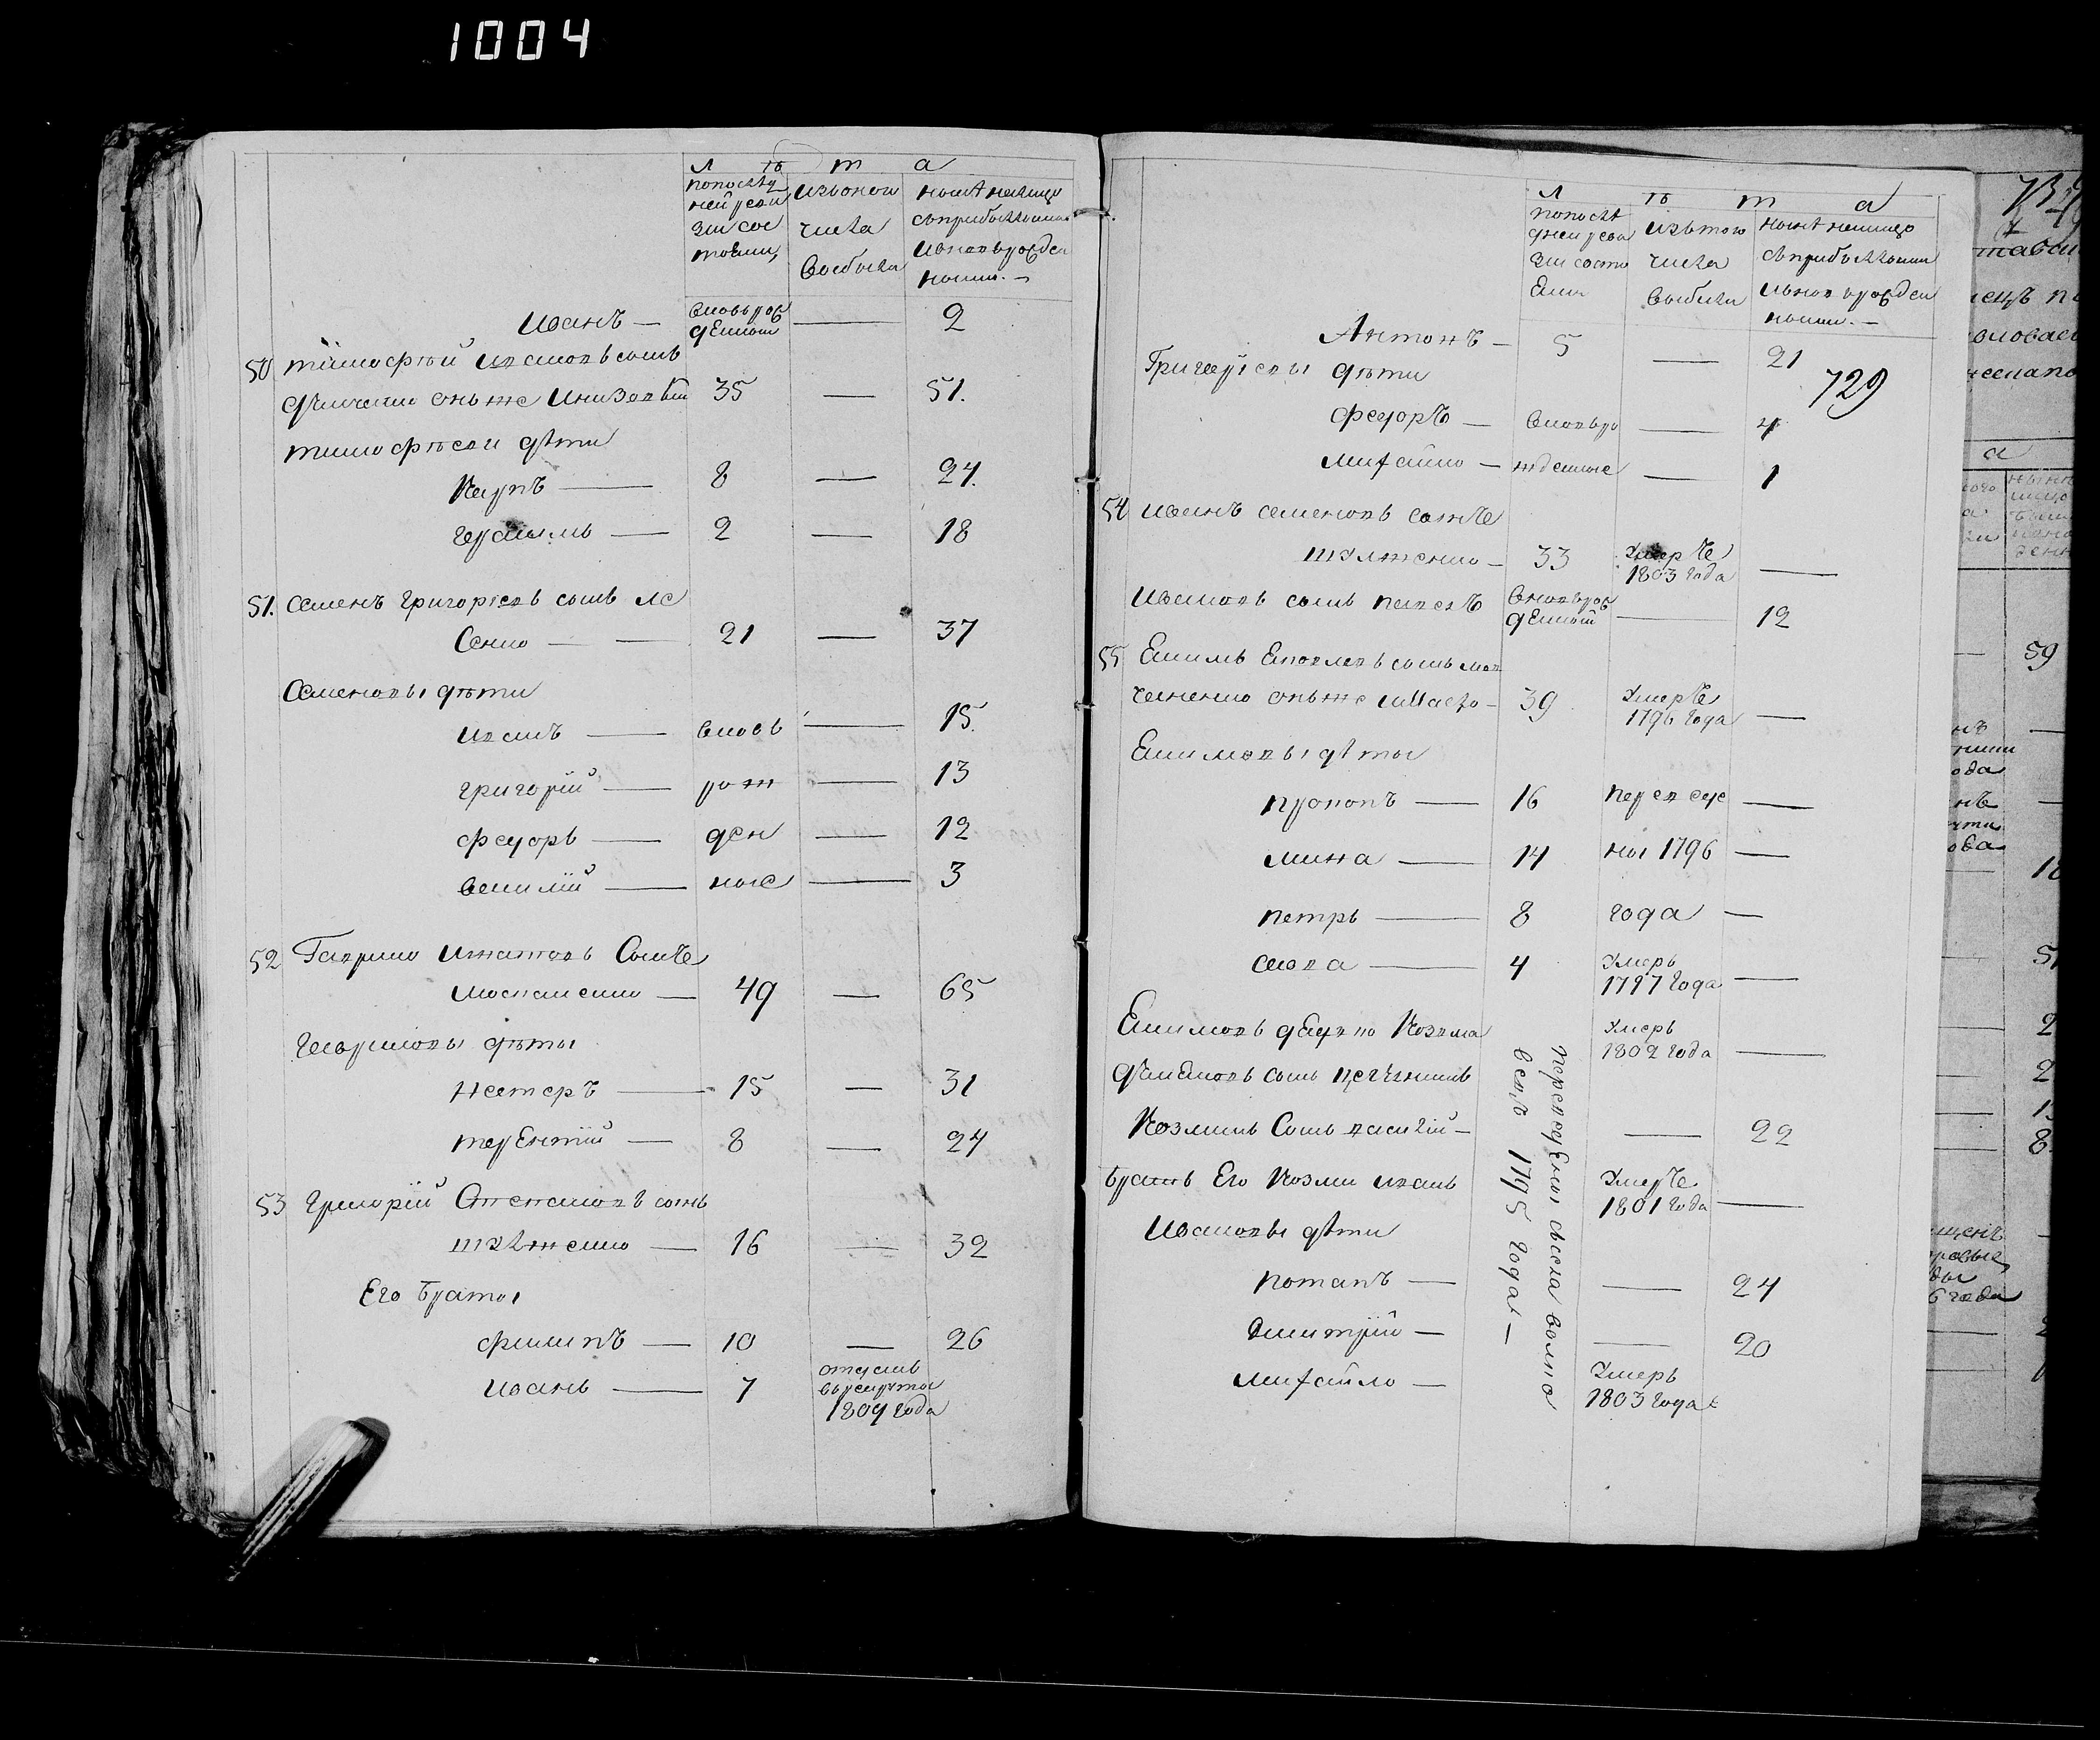 1004
л ѣ т а
попослед
ней реви
зии сос
тояли,
изъоного
числа
выбыли
ныне налицо
съприбылыми
иновърожден
ными.—
Иванъ — вновьрож
денный — 2
50 тимофей ивановъ сынъ
онъже 35 — 51.
тимофеевы дѣти
Карпъ — 8 — 24.
герасимъ — 2 — 18
51. семенъ григорьевъ сынъ ле
сенко — 21 — 37
Семеновы дѣти
иванъ — вновь — 15.
григорій — рож — 13
федоръ — ден — 12
василій — ные — 3
52 Гаврило игнатовъ Сынъ
49 — 65
гавриловы дѣти
нестеръ — 15 — 31
терентій — 8 — 24
53 григорій Степановъ сынъ
шулженко — 16 — 32
Его братьы
филипъ — 10 — 26
иванъ — 7 отданъ
врекруты
1809 года
л ѣ т а
попослѣ
дней реви
зии состо
яли
изътого
числа
выбыли
ныне налицо
съприбылыми
иновъ рожден
ными.—
Антонъ — 5 — 21
729
Григорьевы дѣти
федоръ — вновьро — 4
михайло — жденные — 1
54 иванъ семеновъ сынъ
шулженко — 33 умеръ
1803 года —
Ивановъ сынъ павелъ вновьрож
денный — 12
55 сынъ
онъже 39 умеръ
1796 года —
дѣты
прокопъ — 16 переведе
мина — 14 ны 1796 —
петръ — 8 года —
савва — 4 умеръ
1797 года —
Козма умеръ
1802 года —
сынъ
Козминъ Сынъ василій — — 22
братъ Его Козми иванъ умеръ
1801 года —
Ивановы дѣти
потапъ — — 24
дмитрій — — 20
михайло — умеръ
1803 года
переведены
1795 года —